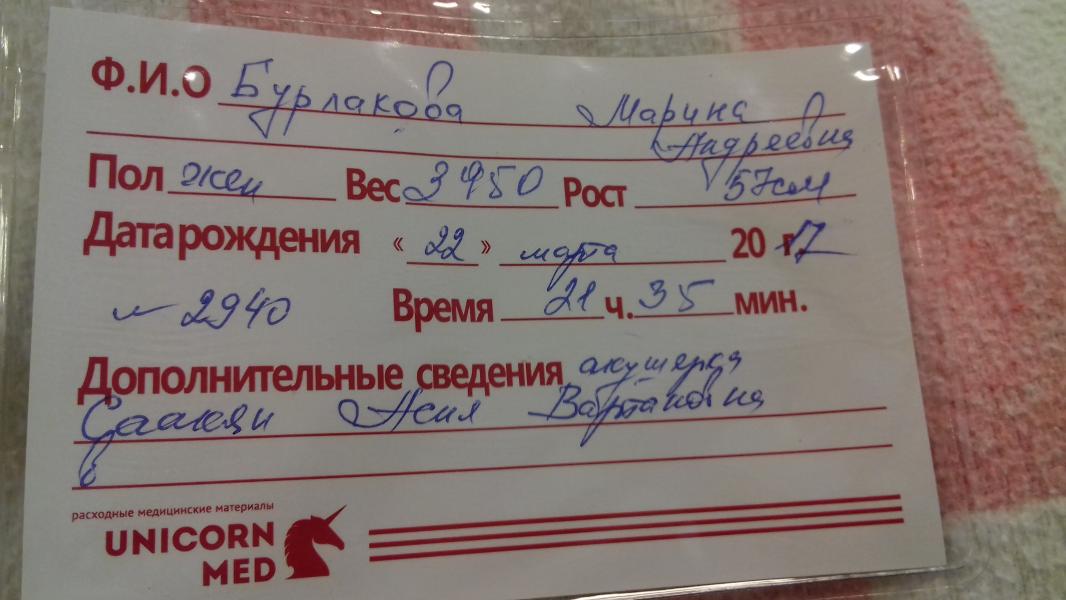 Ф.И.О Бурлакова Марина
Андреевна
Пол жен Вес 3950 Рост 57см
Дата рождения « 22 » марта 20 17
~ 2940 Время 21 ч. 35 мин.
Дополнительные сведения акушерка
Саакян Асия Вартановна
расходные медицинские материалы
UNICORN
MED